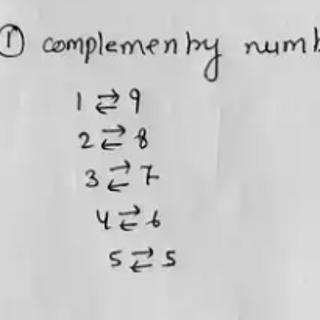 ① complemenby numb
1 ⇄ 9
2 ⇄ 8
3 ⇄ 7
4 ⇄ 6
5 ⇄ 5